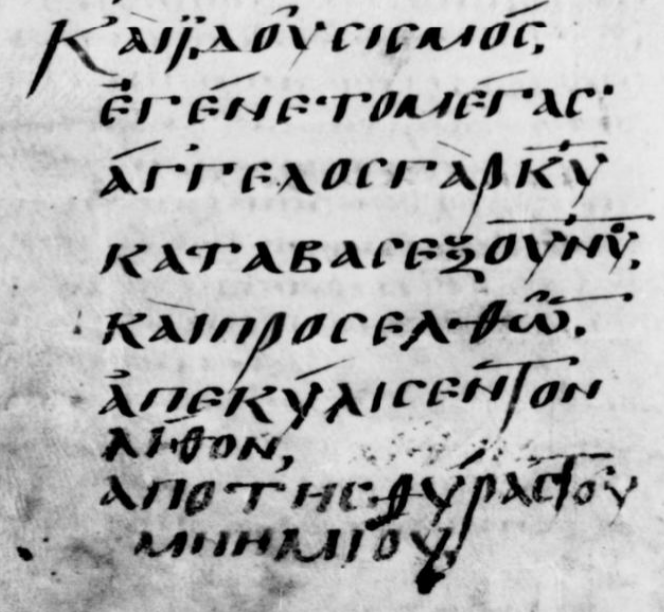 Καὶ ϊ̈δοὺ σισμὸς,
ἐγένετο μέγας·
ἄγγελος γὰρ κ̅υ̅
καταβὰς ἐξ ουνοῦ,
καὶ προσελθὼ̅.
ἀπεκύλισεν τὸν
λίθον,
απο τῆς θύρας τοῦ
μνημίου,